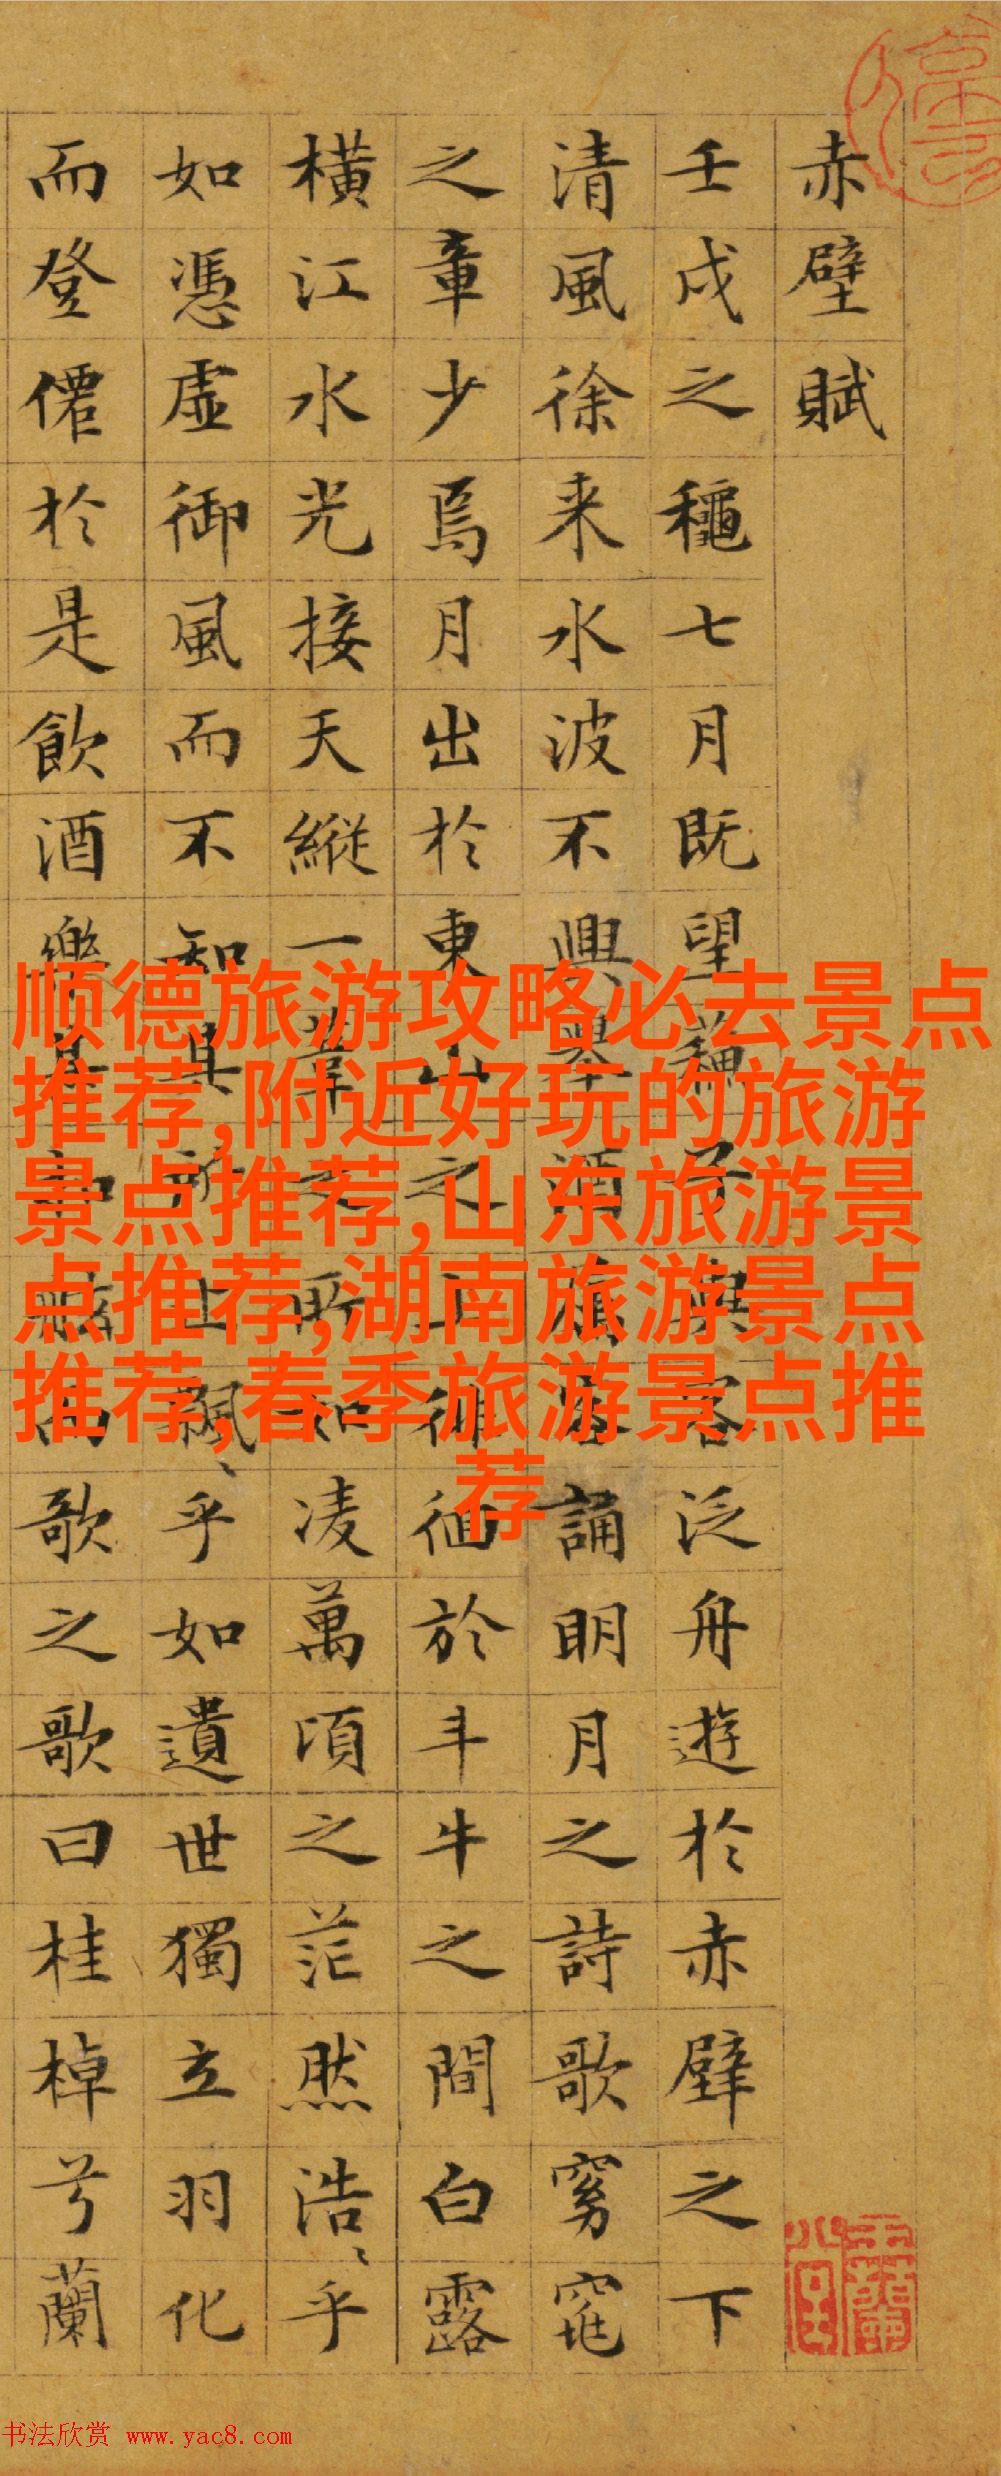 赤壁賦
壬戌之穐七月既望蘓子與客泛舟遊於赤壁之下
清風徐来水波不興舉酒屬客誦明月之詩歌窈窕
之章少焉月出於東山之上徘徊於斗牛之間白露
橫江水光接天縱一葦之所如凌萬頃之茫然浩、乎
如憑虛御風而不知其所止飄、乎如遺世獨立羽化
而登僊於是飲酒樂甚扣舷而歌之歌曰桂棹兮蘭
顺德旅游攻略必去景点
推荐,附近好玩的旅游
景点推荐,山东旅游景
点推荐,湖南旅游景点
推荐,春季旅游景点推
荐
书法欣赏 www.yac8.com